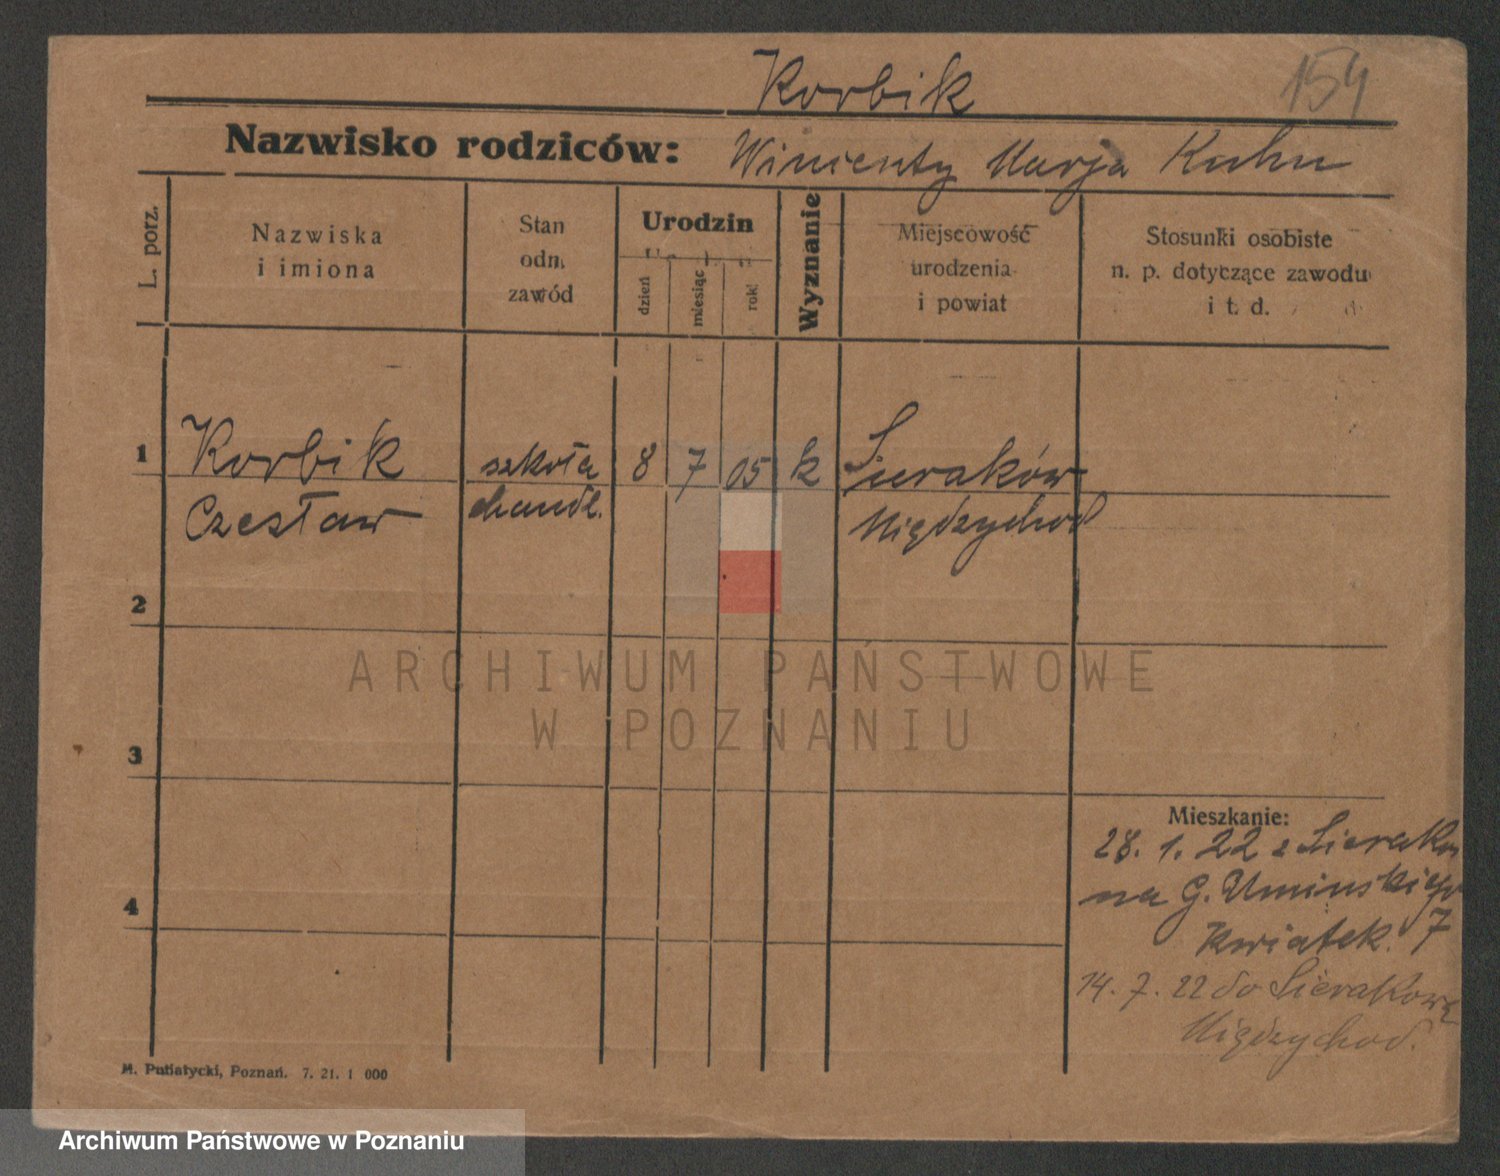 Korbik
154
Nazwisko rodziców: Wincenty Marja Kuhn
L. porz.
Nazwiska
i imiona
Stan
odn.
zawód
Urodzin
dzień
miesiąc
rok
Wyznanie
Miejscowość
urodzenia
i powiat
Stosunki osobiste
n. p. dotyczące zawodu
i t. d.
1
Korbik szkoła 8 7 05 k Sieraków
Czesław handl. Międzychod
2
3
4
Mieszkanie:
28. 1. 22 z Sierakow
na G. Umińskiego
Kwiatek. 7
14. 7. 22 do Sierakowa
Międzychod.
M. Putiatycki, Poznań. 7. 21. 1 000
ARCHIWUM PAŃSTWOWE
W POZNANIU
Archiwum Państwowe w Poznaniu